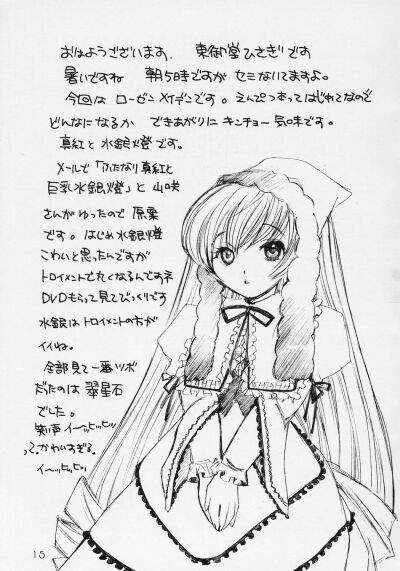 おはようございます、 東御堂ひさぎです
暑いですね 朝5時ですが セミないてますよ。
今回は ローゼンメイデンです。えんぴつ本ってはじめてなので
どんなになるか できあがりに キンチョー気味です。
真紅と 水銀燈です。
メールで「ふたなり真紅と
巨乳水銀燈」と 山咲
さんがゆったので 原案
です。はじめ水銀燈
こわいと思ったんですが
トロイメントで丸くなるんですネ
DVDもらって見てびっくりです
水銀はトロイメントの方が
イイね。
全部見て一番ツボ
だったのは 翠星石
でした。
笑い声 イーッヒッヒッ
って。かわいすぎる。
イーッヒッヒッ
15